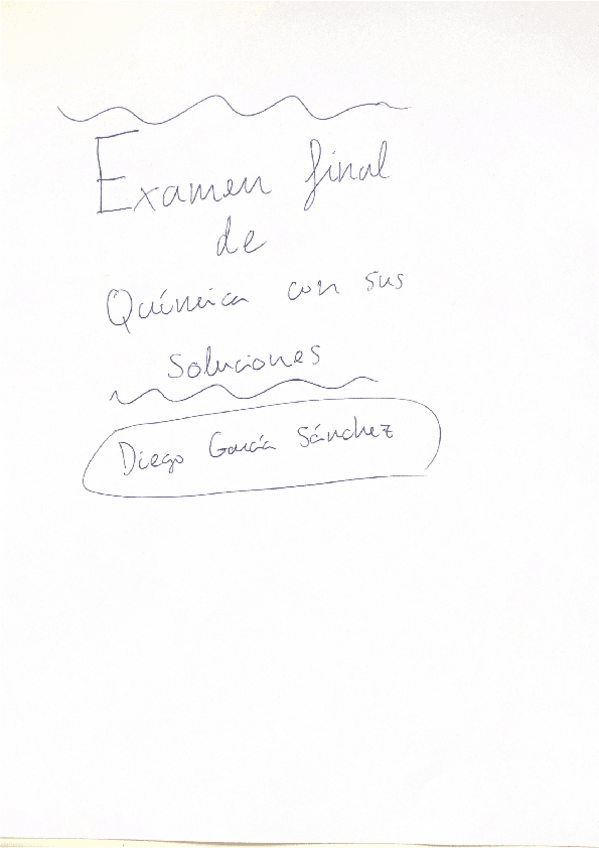 Examen final
de
Química con sus
soluciones
Diego García Sánchez